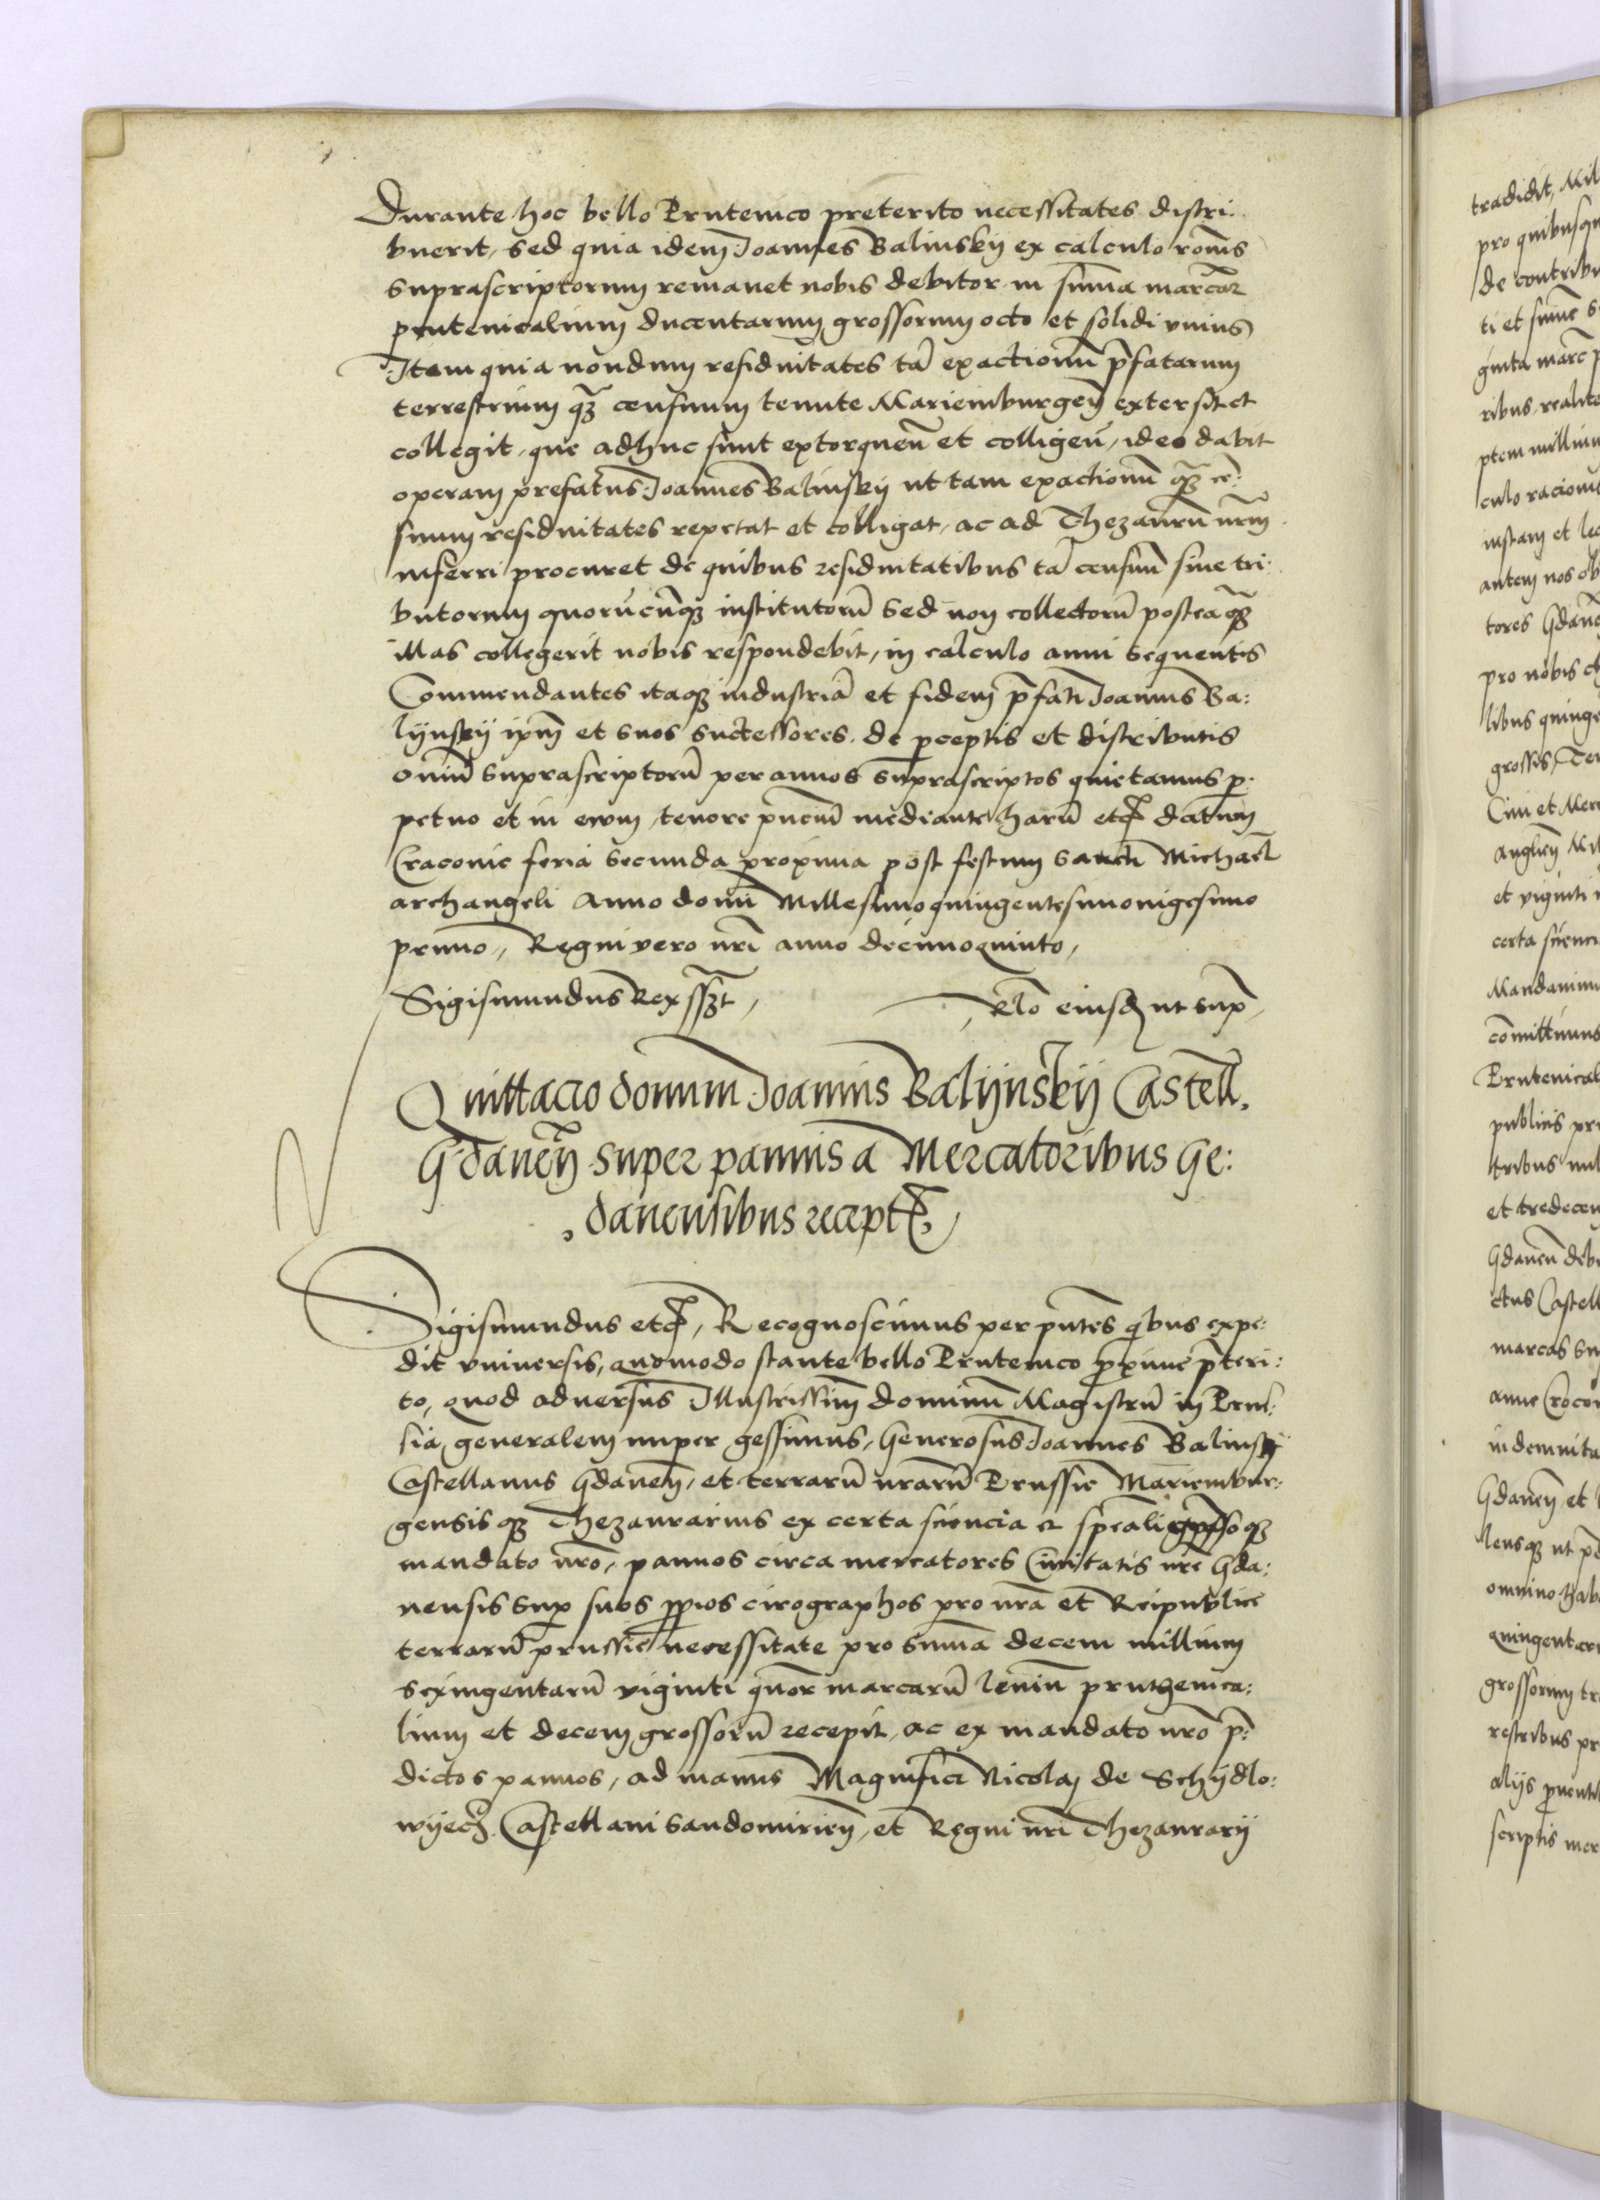 Durante hoc bello Prutenico preterito necessitates distri
buerit, sed quia idem Joannes Balinskij ex calculo ronis
suprascriptorum remanet nobis debitor in suma marcar
prutenicalium ducentarum grossorum octo et solidi unius
Item quia nondum residuitates ta exactionu pfatarum
terrestrium qz censuum tenute Mariemburgen extersit et
collegit, que adhuc sunt extorquen et colligen, ideo dabit
operam prefatus Joannes Balinskij ut tam exactionu qz ce:
suum residuitates repetat et colligat, ac ad Thezauru nrm
inferri procuret de quibus residuitatibus ta censuu siue tri:
butorum quorucunqz institutoru sed non collectoru posteaqz
illas collegerit nobis respondebit, in calculo anni sequentis
Commendantes itaqz industria et fidem pfati Joannis Ba:
lijnskij ipm et suos successores de pceptis et distributis
oniu suprascriptoru per annos suprascriptos quietamus p
petuo et in ewm, tenore pnciu mediante haru etc datum
Craconie feria secunda proxima post festum sancti Michael
archangeli Anno domi Millesimoquingentesimouigesimo
primo, Regni vero nri anno decimoquinto,
Sigismundus Rex sszt, Rlo eiusd ut sup
Quittacio domini Joannis Balijnskij Castell.
Gdanen super pannis a Mercatoribus Ge:
danensibus recept
Sigismundus etc, Recognoscimus per pntes qbus expe:
dit vniuersis, quomodo stante bello Prutenico pxime pteri:
to, quod aduersus Illustrissim dominu Magistru in Prus:
sia generalem nuper gessimus, Generosus Joannes Balinskij
Castellanus Gdanen, et terraru nraru Prussie Mariembur:
gensisqz Thezaurarius ex certa sciencia et speali
mandato nro, pannos circa mercatores Ciuitatis nre Gda:
nensis sup suos ppios cirographos pro nra et Reipublice
terraru prussie necessitate pro suma decem millium
sexingentaru viginti quor marcaru leuiu pruthenica:
lium et decem grossoru recepit, ac ex mandato nro p:
dictos pannos, ad manus Magnifici Nicolaj de Schijdlo:
wijecz Castellani Sandomirien, et Regni nri Thezaurarij
tradidit,
pro
de
ti et
ginta marc
ribus
ptem millium
culo
iustam et
autem nos
tores
pro nobis
libus
grossis,
Ciui et
Anglien
et viginti
certa
Mandamus
comittimus
publicis
tribus
et tredecem
Gdanen
ctus Castell
marcas
anne
indemnita
Gdanen et
lensqz ut
omnino
quingentar
grossorum
restribus
alijs
scriptis mer